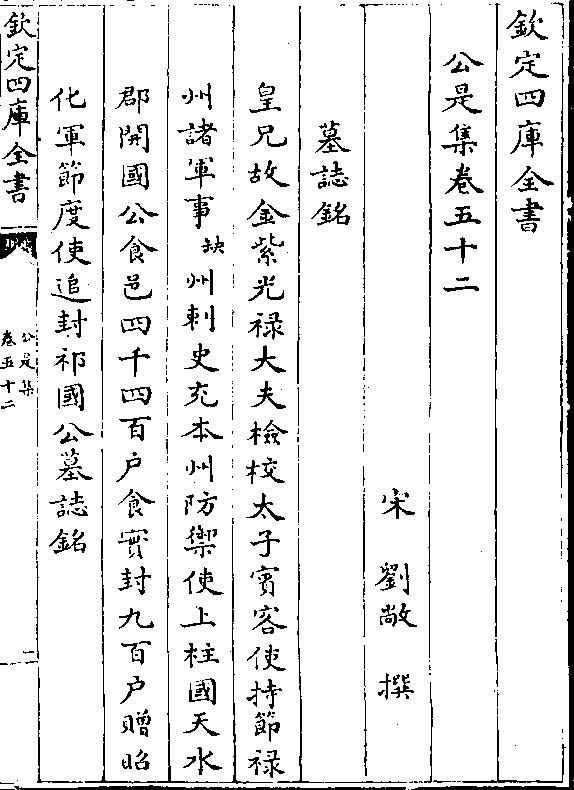 欽定四庫全書
公是集卷五十二
宋 劉敞 撰
墓誌銘
皇兄故金紫光禄大夫檢校太子賓客使持節禄
州諸軍事缺州刺史充本州防禦使上柱國天水
郡開國公食邑四千四百户食實封九百户贈昭
化軍節度使追封祁國公墓誌銘
欽定四庫全書
公是集
卷五十二